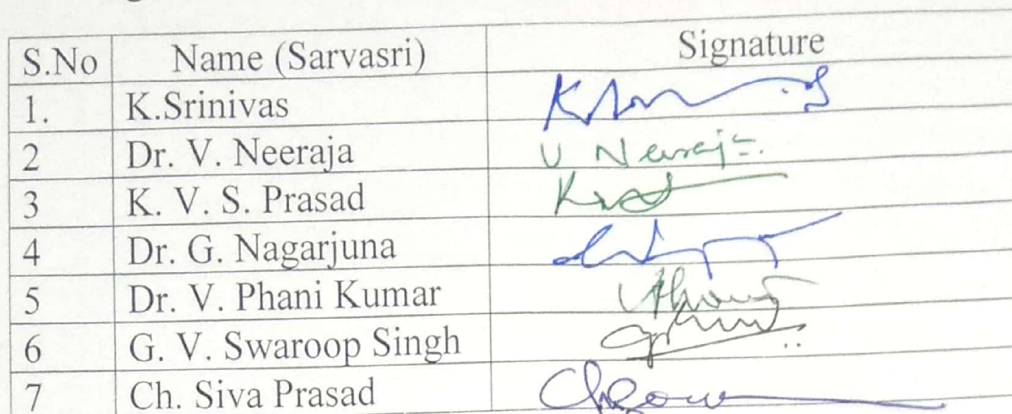 S.No Name (Sarvasri) Signature
1. K.Srinivas
2 Dr. V. Neeraja V Neeraja.
3 K. V. S. Prasad
4 Dr. G. Nagarjuna
5 Dr. V. Phani Kumar
6 G. V. Swaroop Singh
7 Ch. Siva Prasad